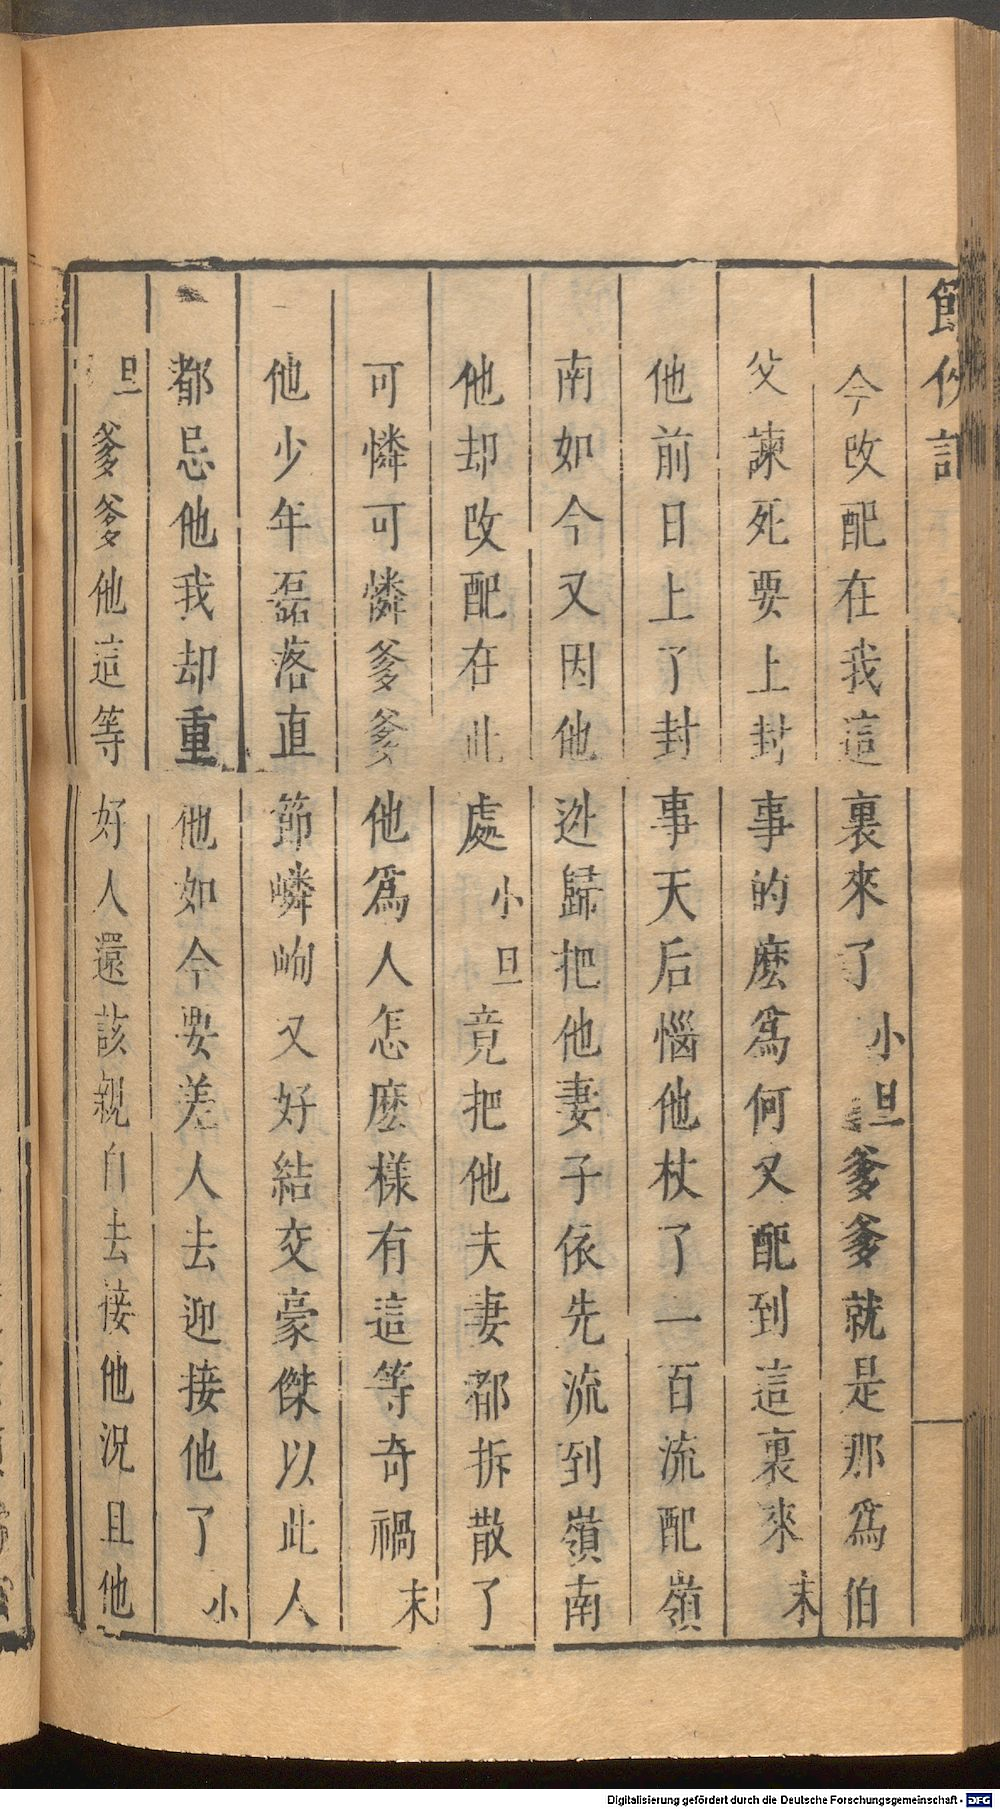 節俠記
今改配在我這裏來了小旦爹爹就是那爲伯
父諫死要上封事的麽爲何又配到這裏來末
他前日上了封事天后惱他杖了一百流配嶺
南如今又因他迯歸把他妻子依先流到嶺南
他却改配在此處小旦竟把他夫妻都拆散了
可憐可憐爹爹他爲人怎麽樣有這等奇禍末
他少年磊落直節嶙峋又好結交豪傑以此人
都忌他我却重他如今要差人去迎接他了小
旦爹爹他這等好人還該親自去接他況且他
Digitalisierung gefördert durch die Deutsche Forschungsgemeinschaft - DFG